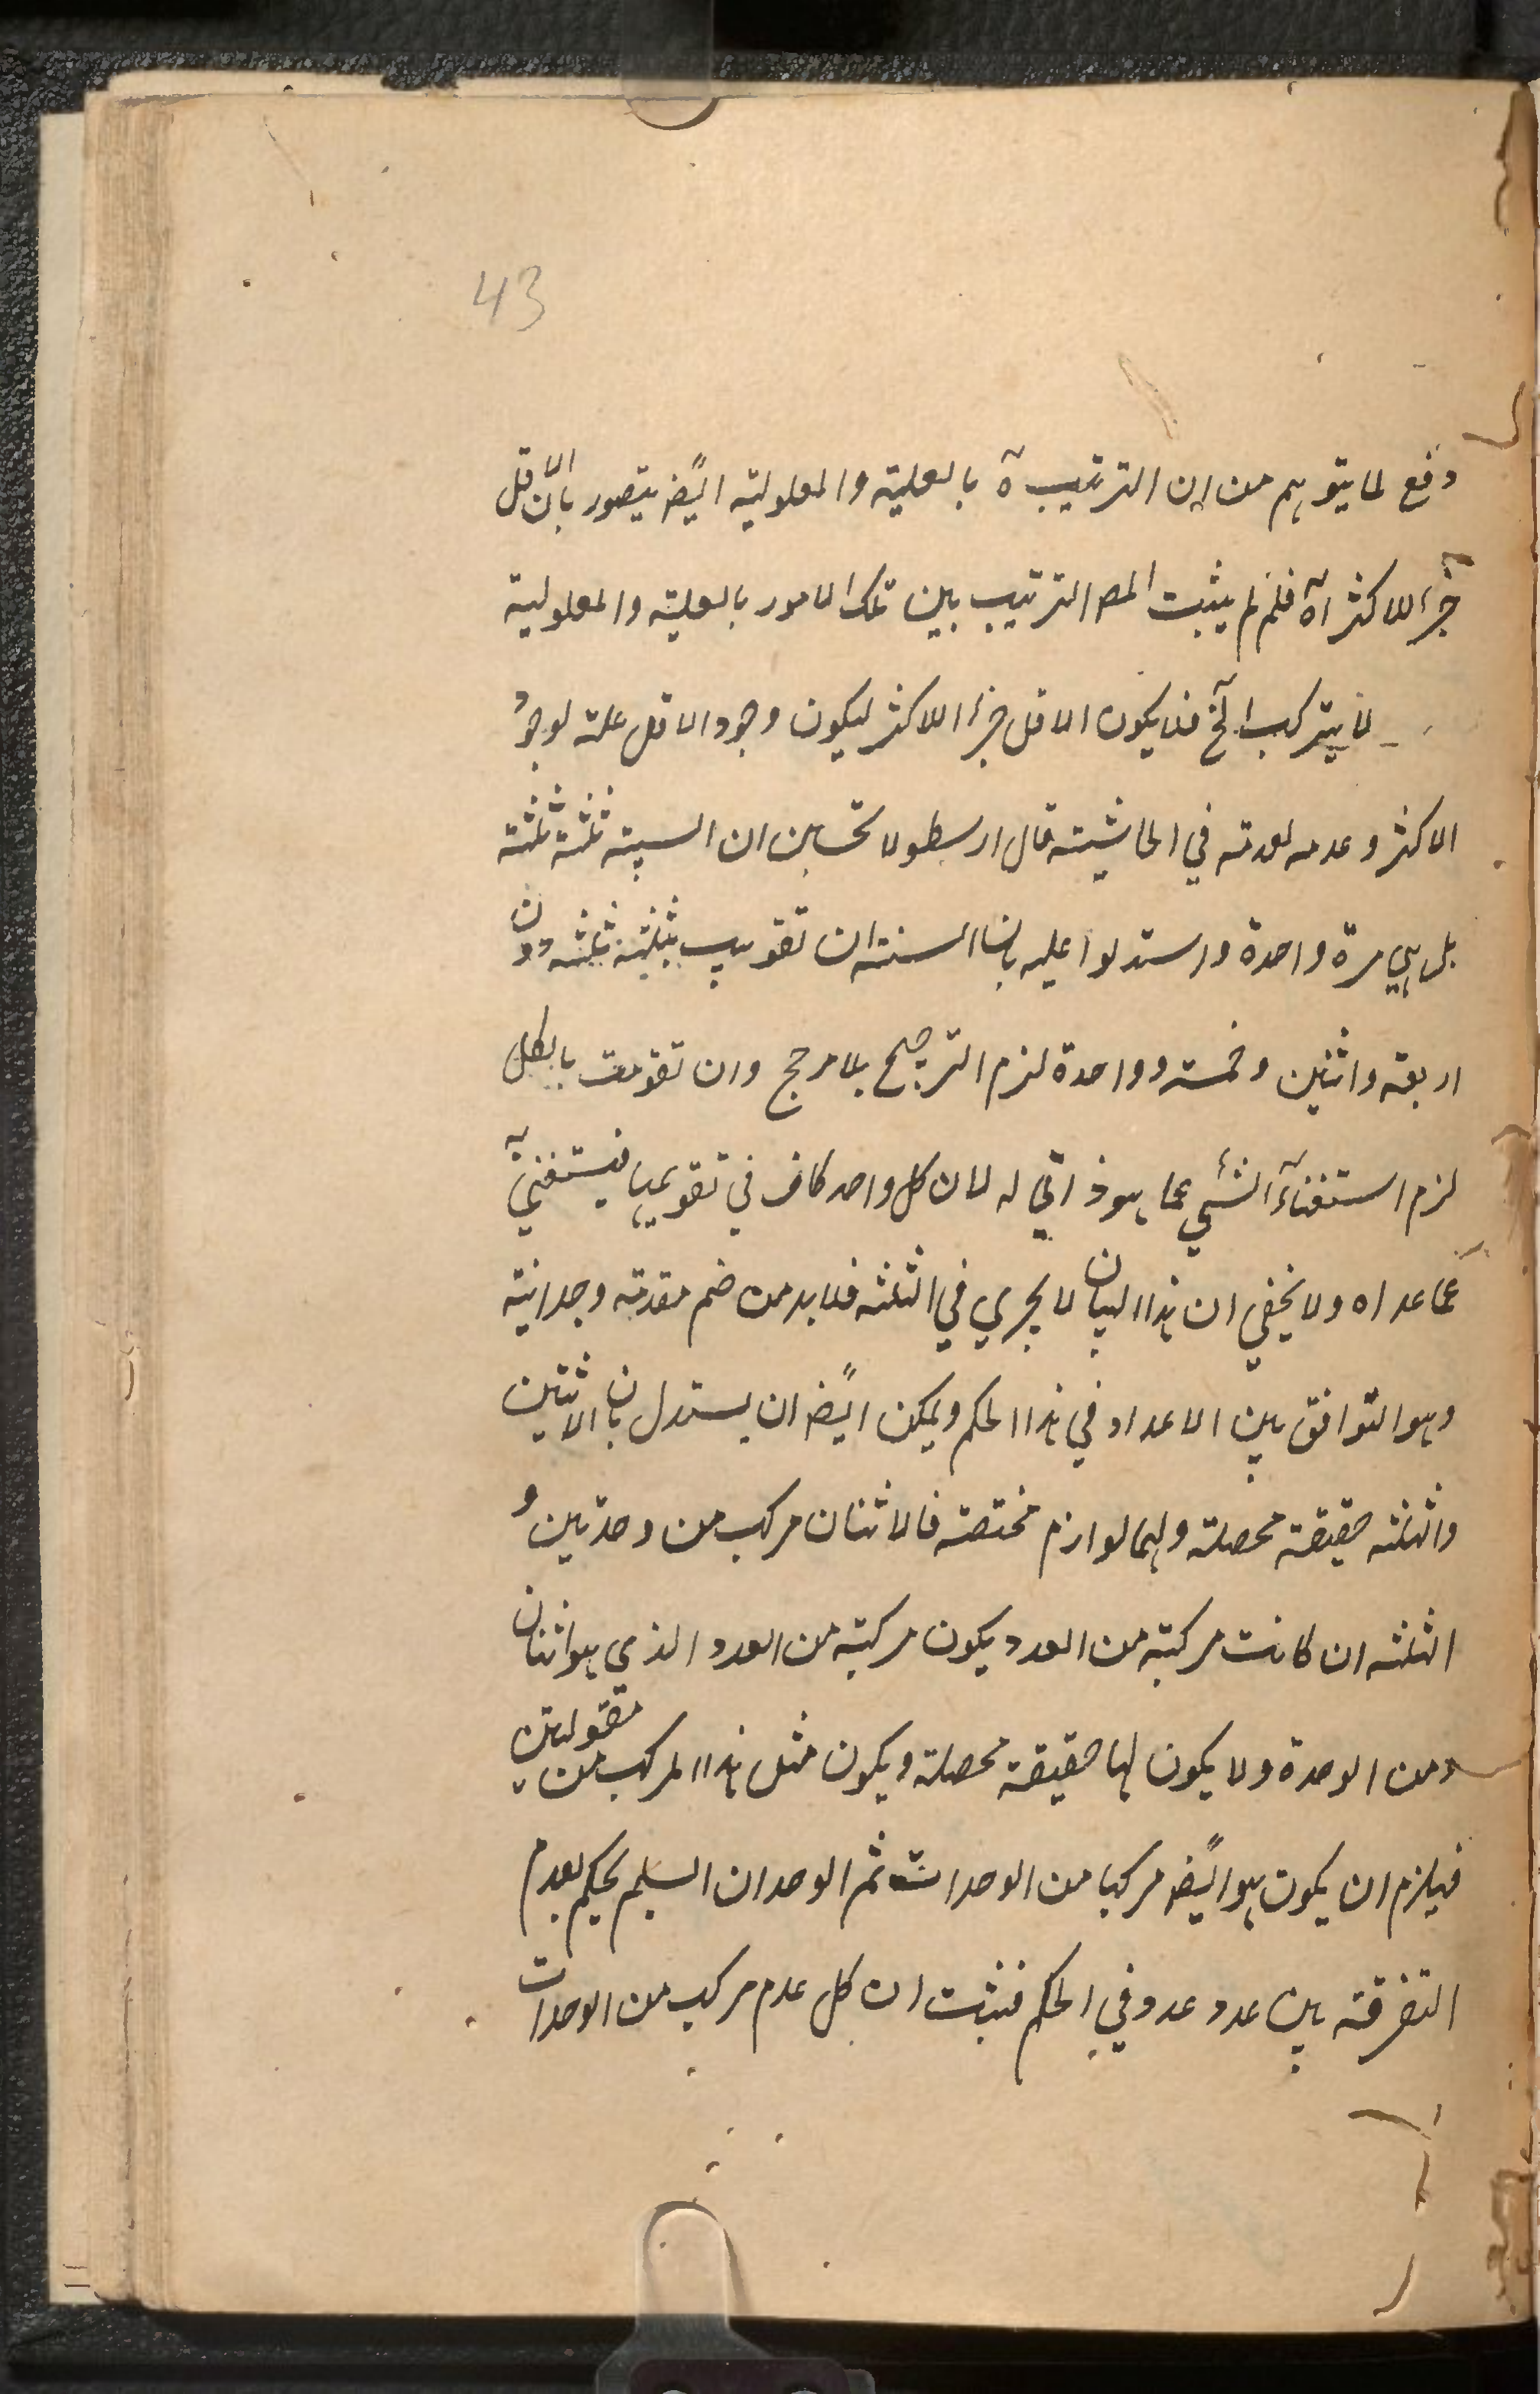 43
دفع لما يتوهم من ان الترتيب ه بالعلية والمعلولية ايضً يتصور بانّ الاقل
جزء للاكثر آه فلِمَ لم يثبت المصـ الترتيب بين تلك الامور بالعلية والمعلولية
لا يتركب الخ فلا يكون الاقل جزءا للاكثر ليكون وجود الاقل علة لوجود
الاكثر وعدمه لعدمه في الحاشية قال ارسطو لا تحسبن ان الستة ثلثة ثلثة
بل هي مرة واحدة واستدلوا عليه بان الستة ان تقومت بثلثة ثلثة دون
اربعة واثنين وخمسة وواحدة لزم الترجيح بلا مرجح وان تقومت بالكل
لزم استغناء الشيء عما هو ذاتي له لان كل واحد كاف في تقويمها فيستغني به
عما عداه ولا يخفى ان هذا البيان لا يجري في الثلثة فلا بد من ضم مقدمة وجدانية
وهو التوافق بين الاعداد في هذا الحكم ويمكن ايضً ان يستدل بان الاثنين
والثلثة حقيقة محصلة ولهما لوازم مختصة فالاثنان مركب من وحدتين و
الثلثة ان كانت مركبة من العدد يكون مركبة من العدد الذي هو اثنان
ومن الوحدة ولا يكون لها حقيقة محصلة ويكون مثل هذا المركب من مقولتين
فيلزم ان يكون هو ايضً مركبا من الوحدات ثم الوجدان السليم يحكم بعدم
التفرقة بين عدد عدد في الحكم فثبت ان كل عدم مركب من الوحدات